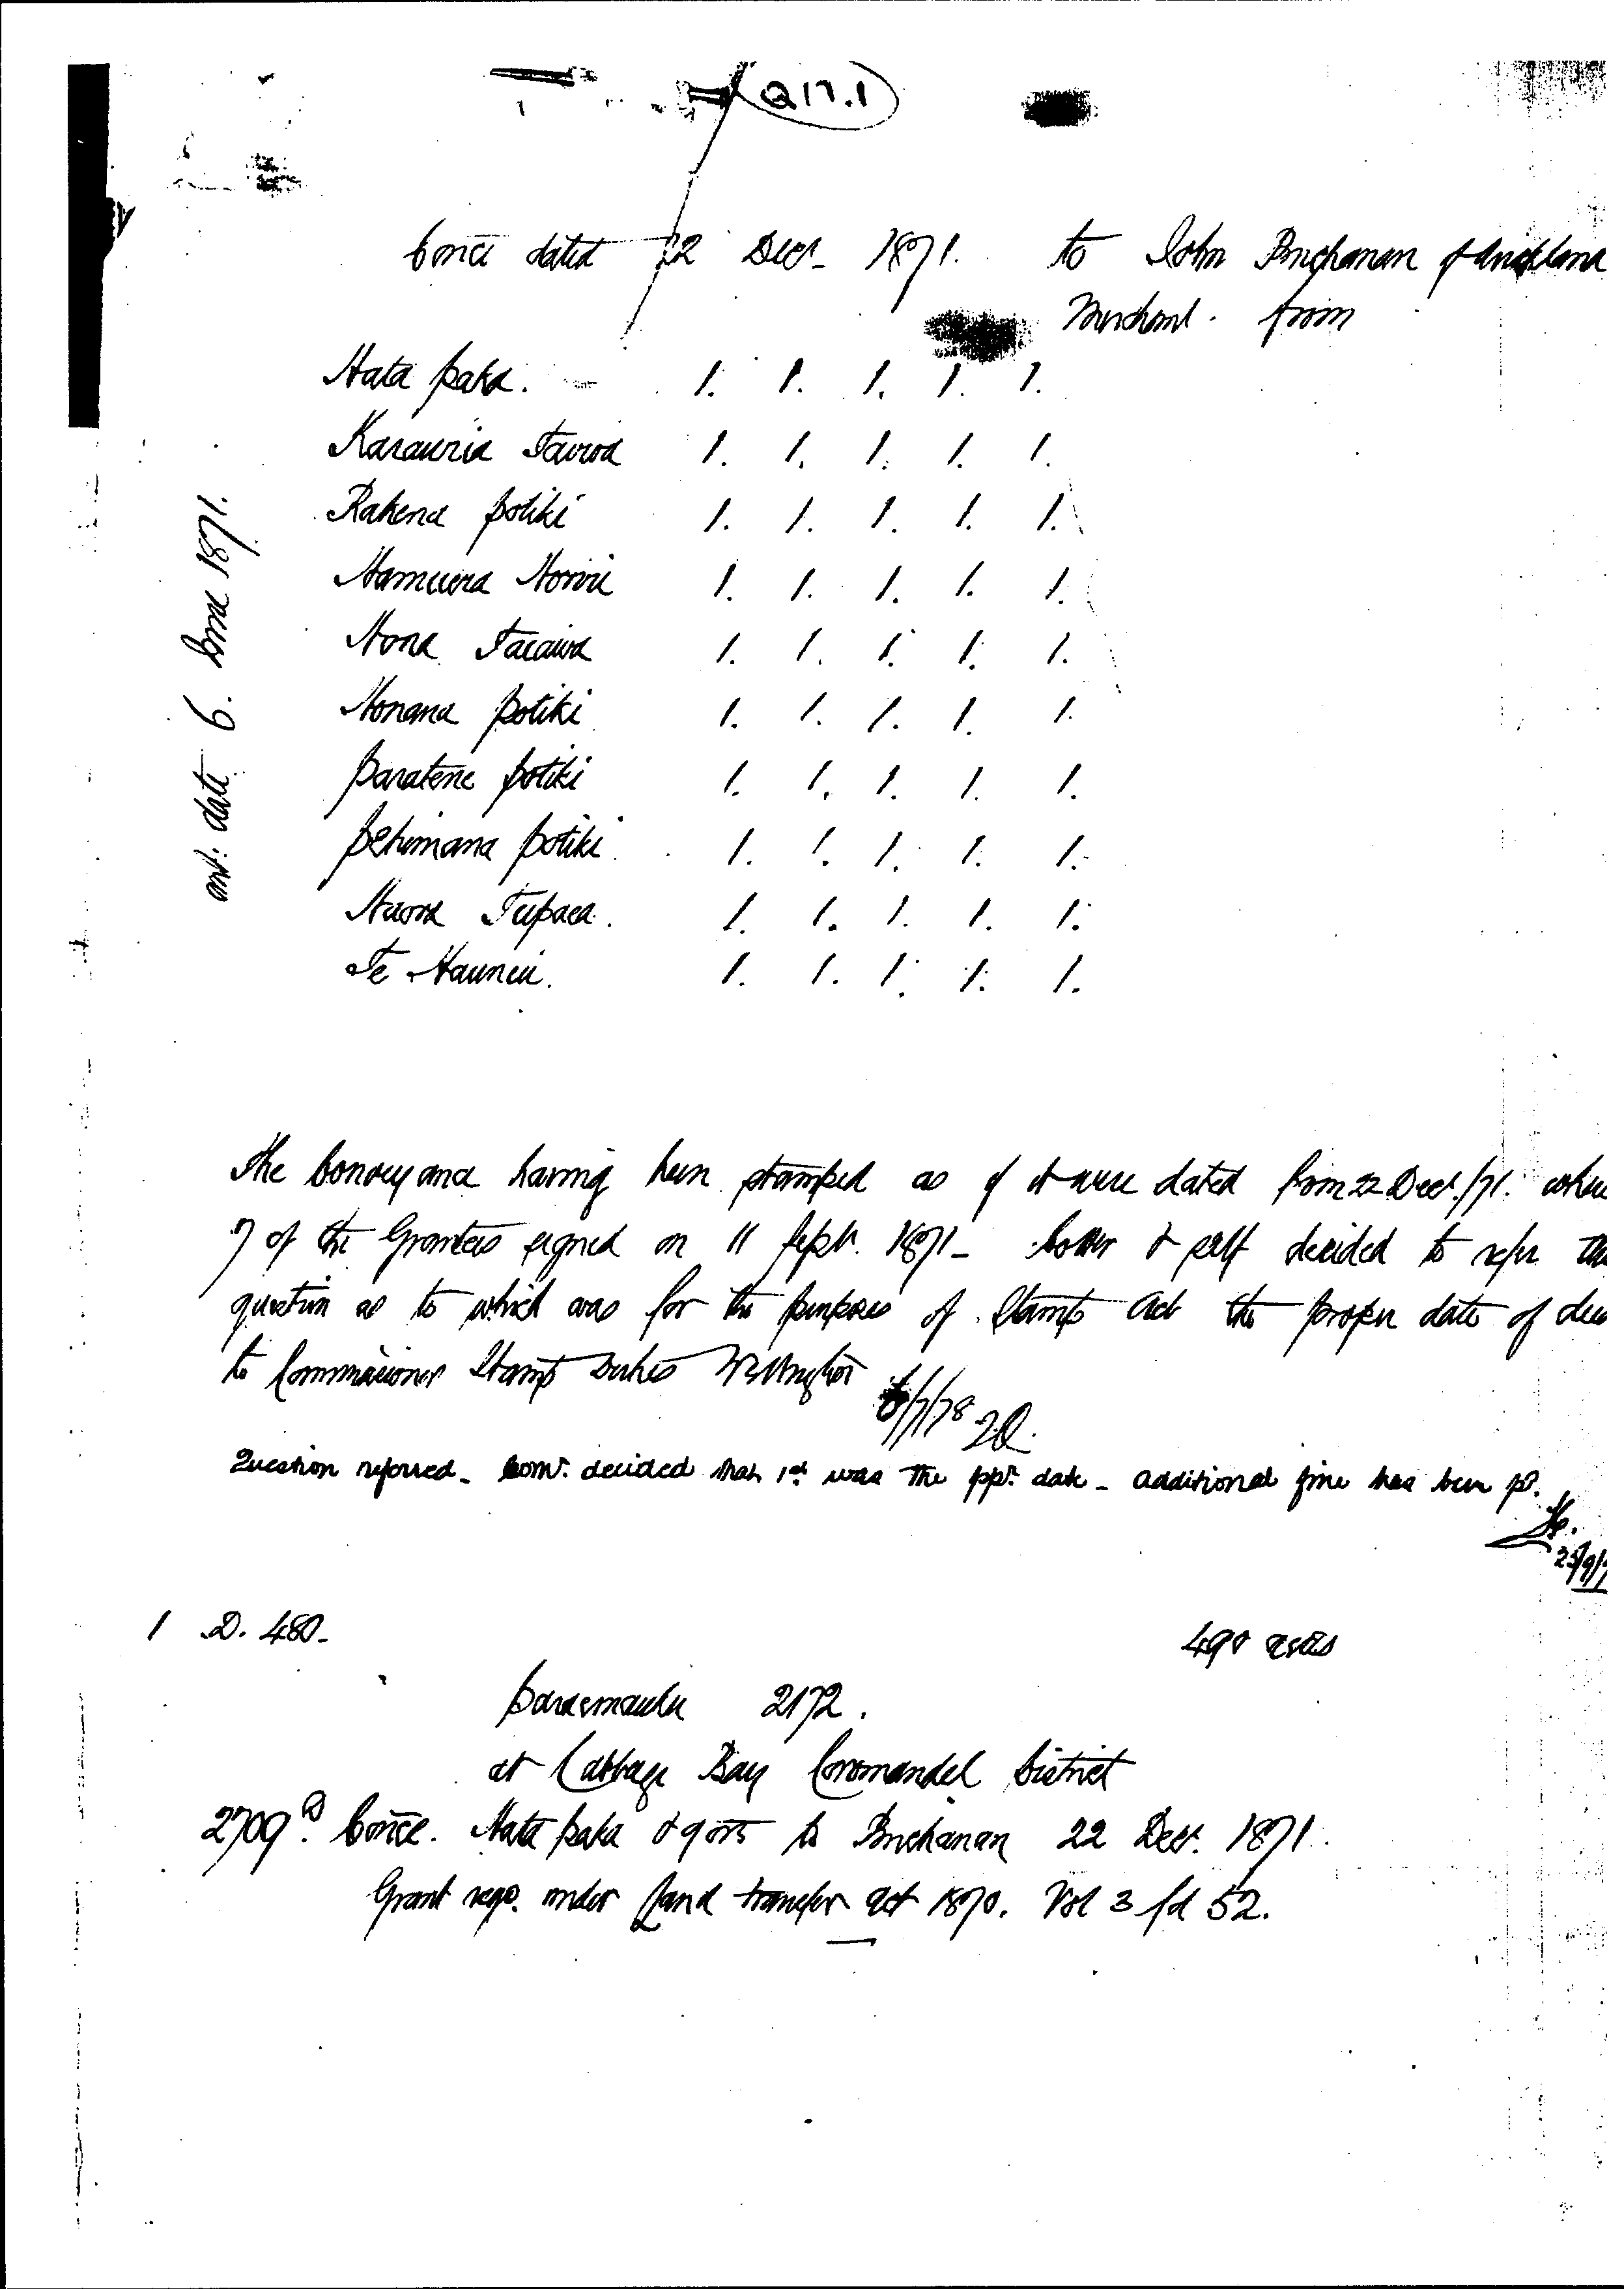 Q 17.1
Conce dated 22 Decr. 1871. to John Buchanan of Auckland
Merchant. from
Hata Paka. 1. 1. 1. 1. 1.
Karauria Tawoa 1. 1. 1. 1. 1.
Rahena Potiki 1. 1. 1. 1. 1.
Hamuera 1. 1. 1. 1. 1.
Hona Taiawa 1. 1. 1. 1. 1.
Honana Potiki 1. 1. 1. 1. 1.
Paratene Potiki 1. 1. 1. 1. 1.
Pehimana Potiki 1. 1. 1. 1. 1.
Tupaea. 1. 1. 1. 1. 1.
Te Haunui. 1. 1. 1. 1. 1.
ant: date 6. 1871.
The Conveyance having been stamped as if it were dated from 22 Decr./71. when
7 of the Grantees signed on 11 Septr. 1871 - & self decided to refer the
question as to which was for the purposes of Stamps Act the proper date of
to Commissioner Stamp Duties Wellington
/7/78
Question referred - Comr. decided that 1st was the ppr. date - additional fine has been pd.
25/9/
1 D. 480. 490 acres
2172.
at Cabbage Bay Coromandel District
2709 D. Conce. Hata Paka & 9 ors to Buchanan 22 Decr. 1871.
Grant regd. under Land Transfer Act 1870. Vol 3 fol 52.